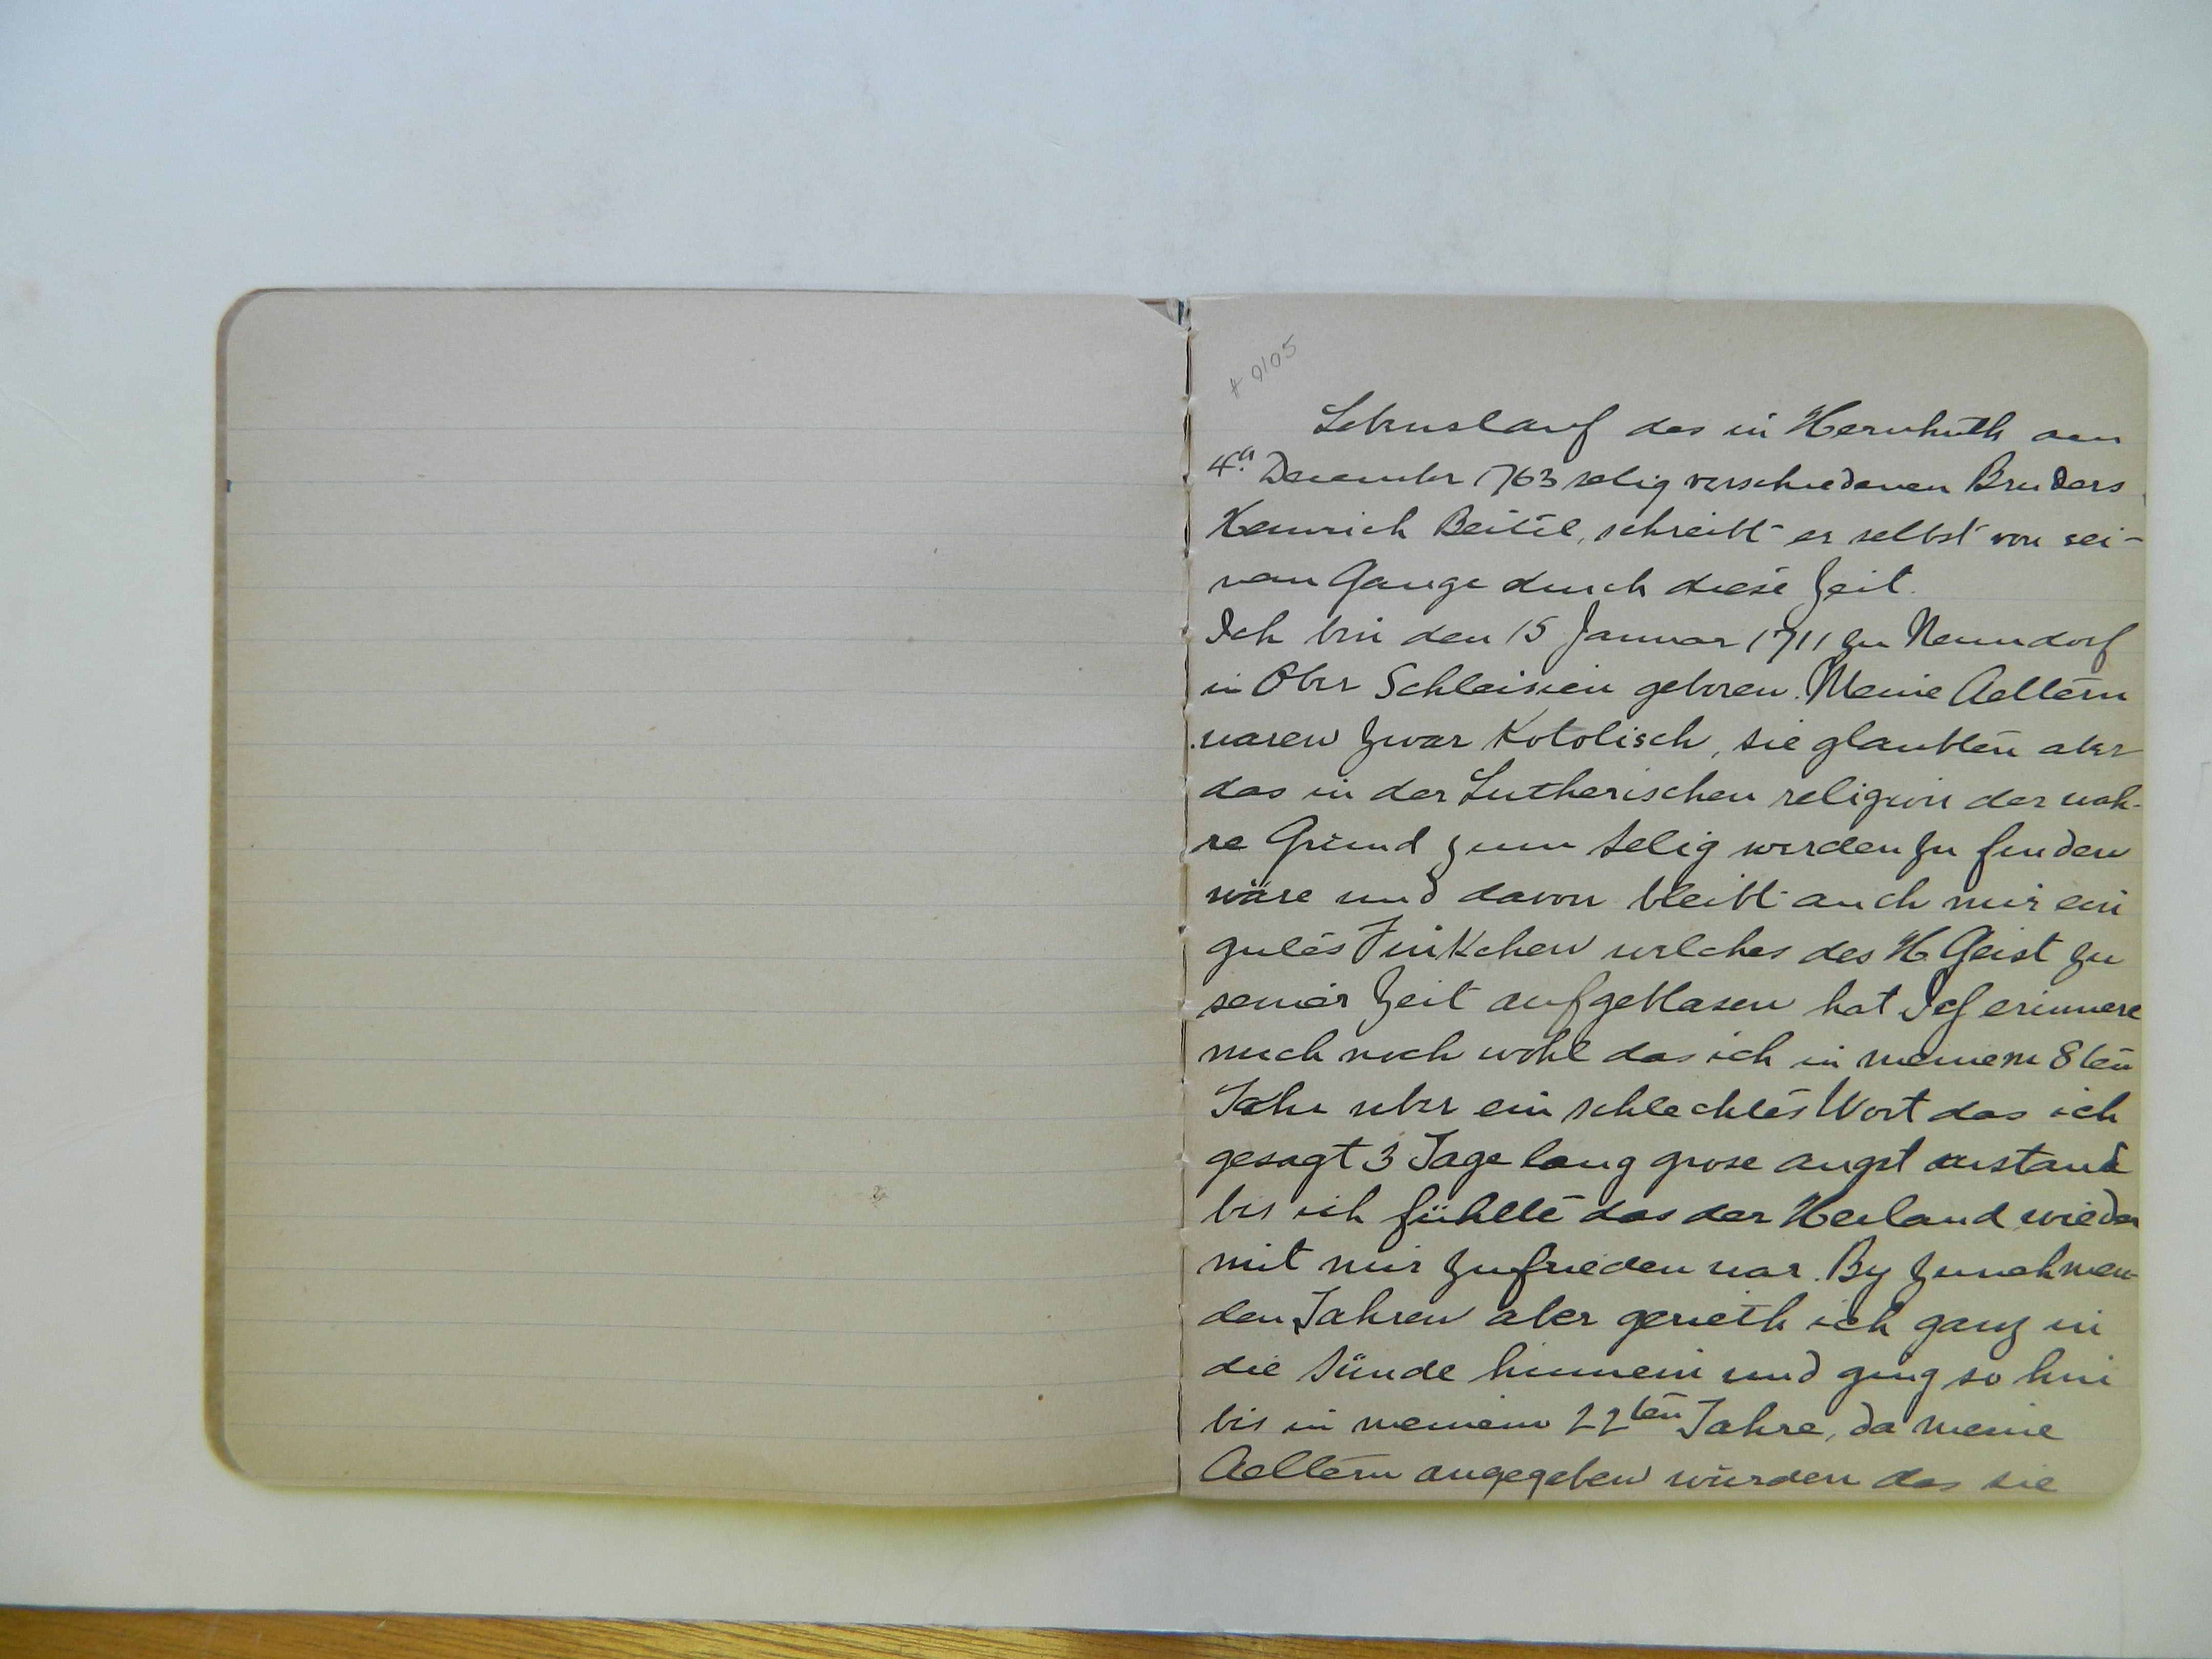 # 9105
Lebenslauf des in Hernhuth am
4.n December 1763 selig verschiedenen Bruders
Heinrich Beitel, schreibt er selbst von sei-
nem Gange durch diese Zeit.
Ich bin den 15 Januar 1711 zu Neundorf
in Ober Schleisien geboren. Meine Aeltern
waren zwar Kotolisch, sie glaubten aber
das in der Lutherischen religion der wah-
re Grund zum selig werden zu finden
wäre und davon bleibt auch mir ein
gutes Finkchen welches des H Geist zu
seiner Zeit aufgeblasen hat Ich erinnere
mich noch wohl das ich in meinem 8ten
Jahr uber ein schlechtes Wort das ich
gesagt 3 Tage lang grose angst
bis ich fühlte das der Heiland wieder
mit mir zufrieden war. By zunehmen-
den Jahren aber gerieth ich ganz in
die Sünde hinnein und ging so hin
bis in meinem 22ten Jahre, da meine
Aeltern angegeben würden das sie